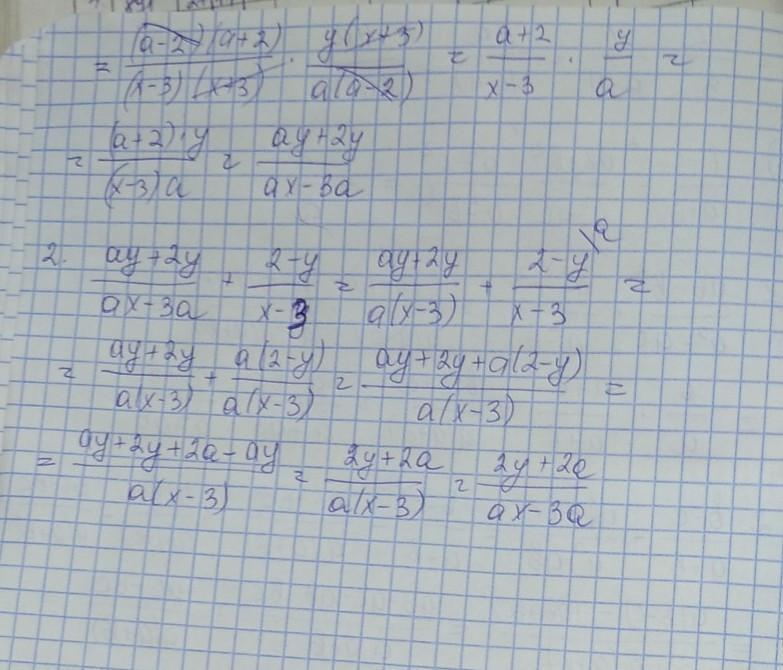 = (a-2)(a+2)/(x-3)(x+3) · y(x+3)/a(a-2) = a+2/x-3 · y/a =
= (a+2)·y/(x-3)a = ay+2y/ax-3a
2. ay+2y/ax-3a + 2-y/x-3 = ay+2y/a(x-3) + 2-y\a/x-3 =
= ay+2y/a(x-3) + a(2-y)/a(x-3) = ay+2y+a(2-y)/a(x-3) =
= ay+2y+2a-ay/a(x-3) = 2y+2a/a(x-3) = 2y+2a/ax-3a